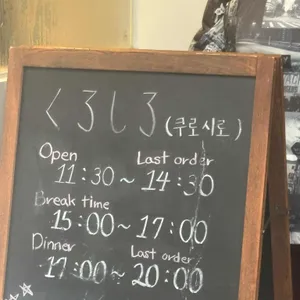 くろしろ(쿠로시로)
Open Last order
11:30~14:30
Break time
15:00~17:00
Dinner Last order
17:00~20:00